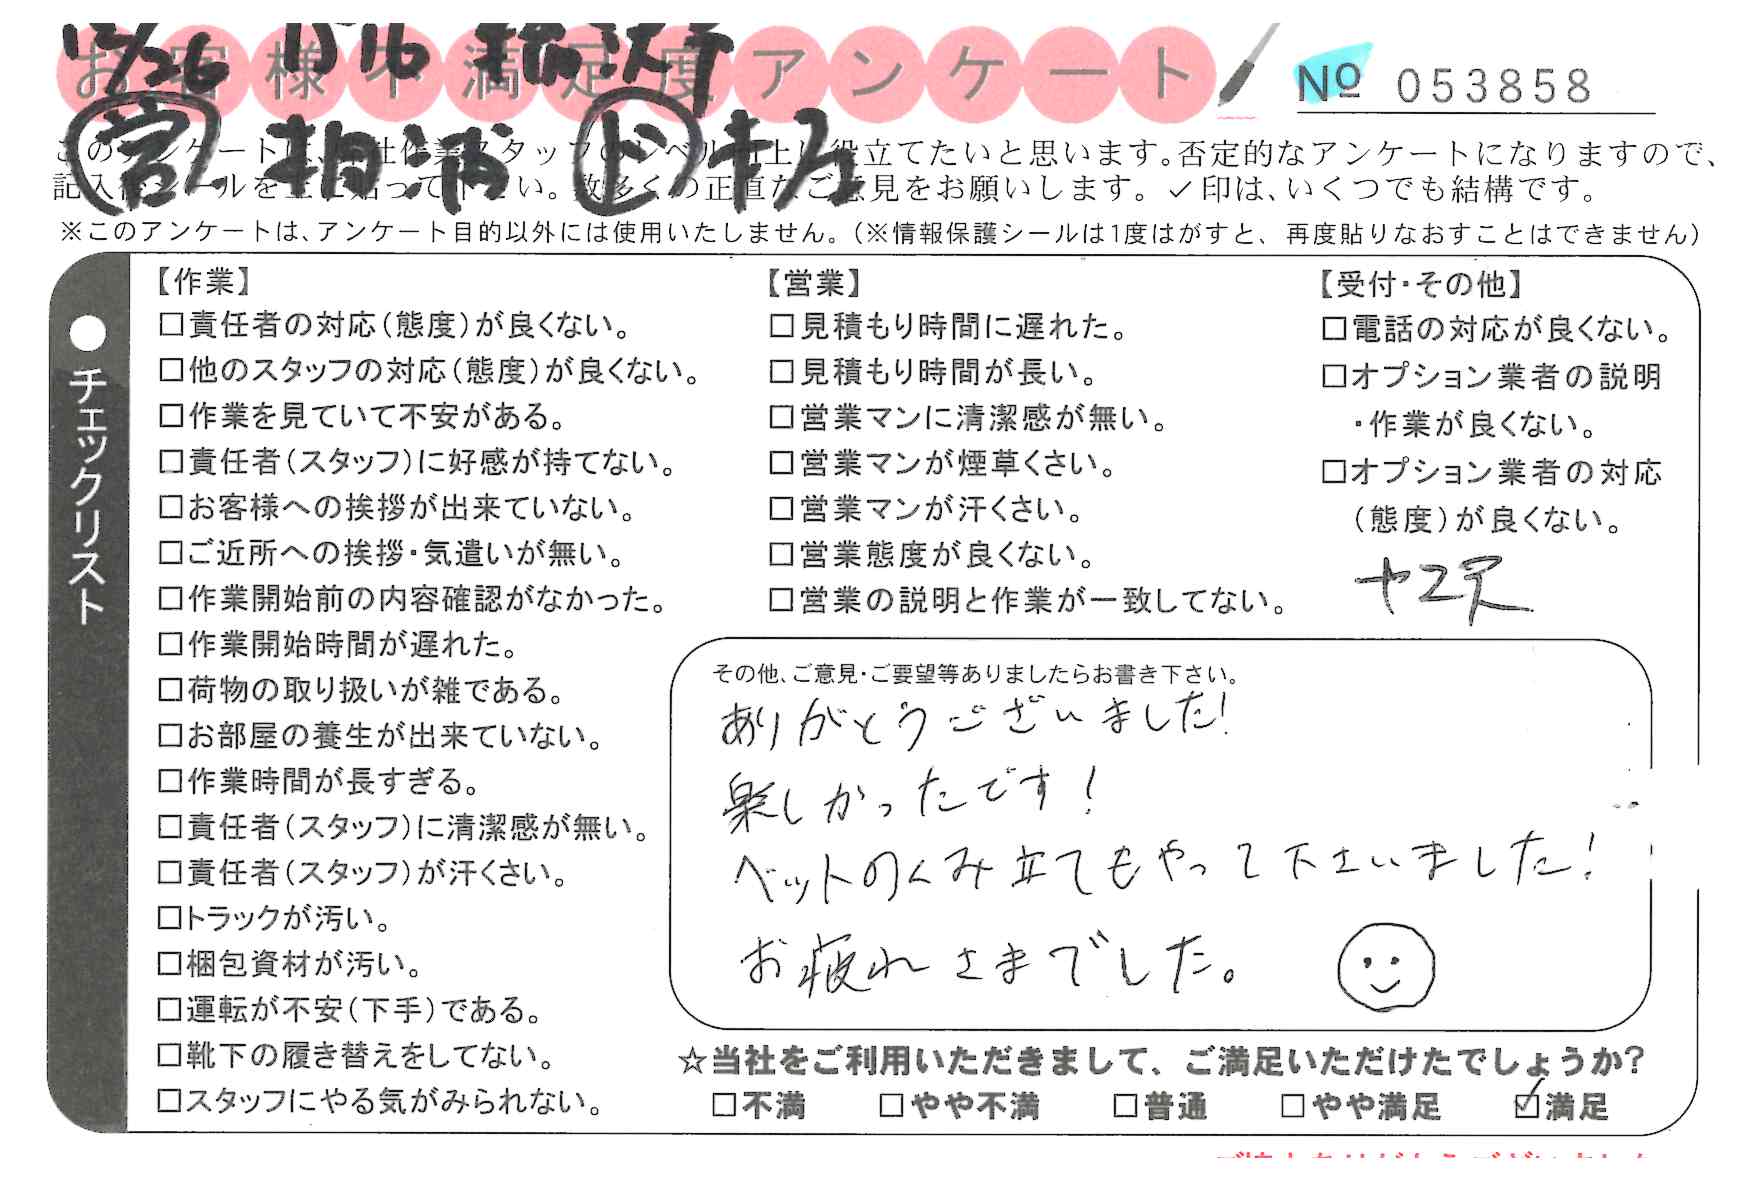 12/26
お客様不満足度アンケート
№ 053858
営 相浦 ド
このアンケートは、弊社作業スタッフのレベル向上に役立てたいと思います。否定的なアンケートになりますので、
記入後シールを上に貼って下さい。数多くの正直なご意見をお願いします。✓印は、いくつでも結構です。
※このアンケートは、アンケート目的以外には使用いたしません。(※情報保護シールは1度はがすと、再度貼りなおすことはできません)
●チェックリスト
【作業】
□責任者の対応(態度)が良くない。
□他のスタッフの対応(態度)が良くない。
□作業を見ていて不安がある。
□責任者(スタッフ)に好感が持てない。
□お客様への挨拶が出来ていない。
□ご近所への挨拶・気遣いが無い。
□作業開始前の内容確認がなかった。
□作業開始時間が遅れた。
□荷物の取り扱いが雑である。
□お部屋の養生が出来ていない。
□作業時間が長すぎる。
□責任者(スタッフ)に清潔感が無い。
□責任者(スタッフ)が汗くさい。
□トラックが汚い。
□梱包資材が汚い。
□運転が不安(下手)である。
□靴下の履き替えをしてない。
□スタッフにやる気がみられない。
【営業】
□見積もり時間に遅れた。
□見積もり時間が長い。
□営業マンに清潔感が無い。
□営業マンが煙草くさい。
□営業マンが汗くさい。
□営業態度が良くない。
□営業の説明と作業が一致してない。
【受付・その他】
□電話の対応が良くない。
□オプション業者の説明
・作業が良くない。
□オプション業者の対応
(態度)が良くない。
その他、ご意見・ご要望等ありましたらお書き下さい。
ありがとうございました!
楽しかったです!
ベットのくみ立てもやって下さいました!
お疲れさまでした。
☆当社をご利用いただきまして、ご満足いただけたでしょうか?
□不満 □やや不満 □普通 □やや満足 ☑満足